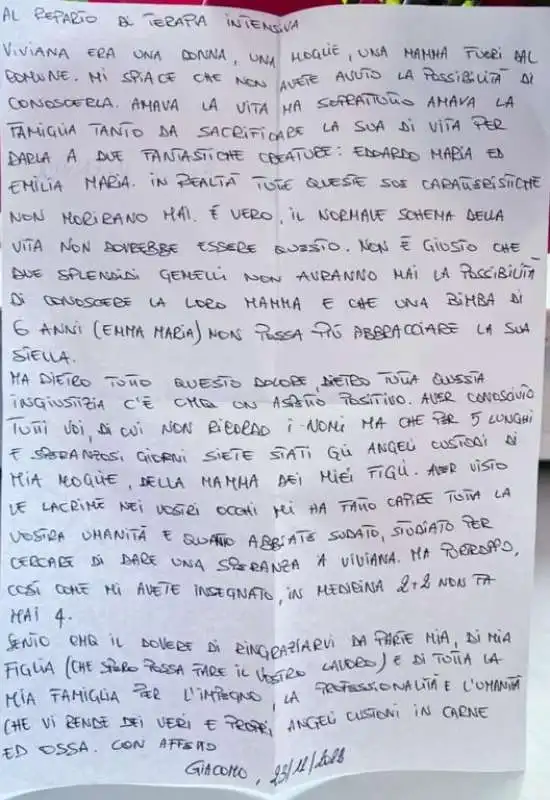 AL REPARTO DI TERAPIA INTENSIVA
VIVIANA ERA UNA DONNA, UNA MOGLIE, UNA MAMMA FUORI DAL
COMUNE. MI SPIACE CHE NON AVETE AVUTO LA POSSIBILITÀ DI
CONOSCERLA. AMAVA LA VITA MA SOPRATTUTTO AMAVA LA
FAMIGLIA TANTO DA SACRIFICARE LA SUA DI VITA PER
DARLA A DUE FANTASTICHE CREATURE: EDOARDO MARIA ED
EMILIA MARIA. IN REALTÀ TUTTE QUESTE SUE CARATTERISTICHE
NON MORIRANO MAI. È VERO, IL NORMALE SCHEMA DELLA
VITA NON DOVREBBE ESSERE QUESTO. NON È GIUSTO CHE
DUE SPLENDIDI GEMELLI NON AVRANNO MAI LA POSSIBILITÀ
DI CONOSCERE LA LORO MAMMA E CHE UNA BIMBA DI
6 ANNI (EMMA MARIA) NON POSSA PIÙ ABBRACCIARE LA SUA
STELLA.
MA DIETRO TUTTO QUESTO DOLORE, DIETRO TUTTA QUESTA
INGIUSTIZIA C'È CMQ UN ASPETTO POSITIVO. AVER CONOSCIUTO
TUTTI VOI, DI CUI NON RICORDO I NOMI MA CHE PER 5 LUNGHI
E SPERANZOSI GIORNI SIETE STATI GLI ANGELI CUSTODI DI
MIA MOGLIE, DELLA MAMMA DEI MIEI FIGLI. AVER VISTO
LE LACRIME NEI VOSTRI OCCHI MI HA FATTO CAPIRE TUTTA LA
VOSTRA UMANITÀ E QUANTO ABBIATE SUDATO, STUDIATO PER
CERCARE DI DARE UNA SPERANZA A VIVIANA. MA PURTROPPO,
COSÌ COME MI AVETE INSEGNATO, IN MEDICINA 2+2 NON FA
MAI 4.
SENTO CMQ IL DOVERE DI RINGRAZIARVI DA PARTE MIA, DI MIA
FIGLIA (CHE SPERO POSSA FARE IL VOSTRO LAVORO) E DI TUTTA LA
MIA FAMIGLIA PER L'IMPEGNO, LA PROFESSIONALITÀ E L'UMANITÀ
CHE VI RENDE DEI VERI E PROPRI ANGELI CUSTODI IN CARNE
ED OSSA. CON AFFETTO
GIACOMO,